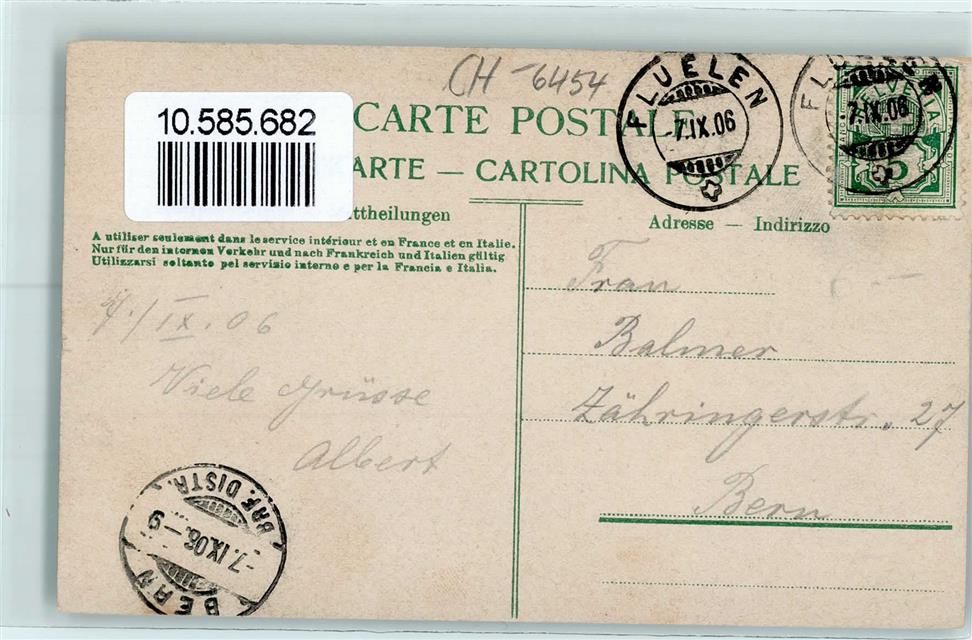 CH-6454
10.585.682
CARTE POSTALE
ARTE — CARTOLINA POSTALE
ttheilungen
Adresse — Indirizzo
A utiliser seulement dans le service intérieur et en France et en Italie.
Nur für den internen Verkehr und nach Frankreich und Italien gültig
Utilizzarsi soltanto pel servizio interno e per la Francia e Italia.
FLUELEN
-7.IX.06
FLUELEN
-7.IX.06
HELVETIA
5
7./IX.06
Viele Grüsse
Albert
Frau
Balmer
Zähringerstr. 27
Bern
BERN
-7.IX.06.-9
BRF. DISTR.